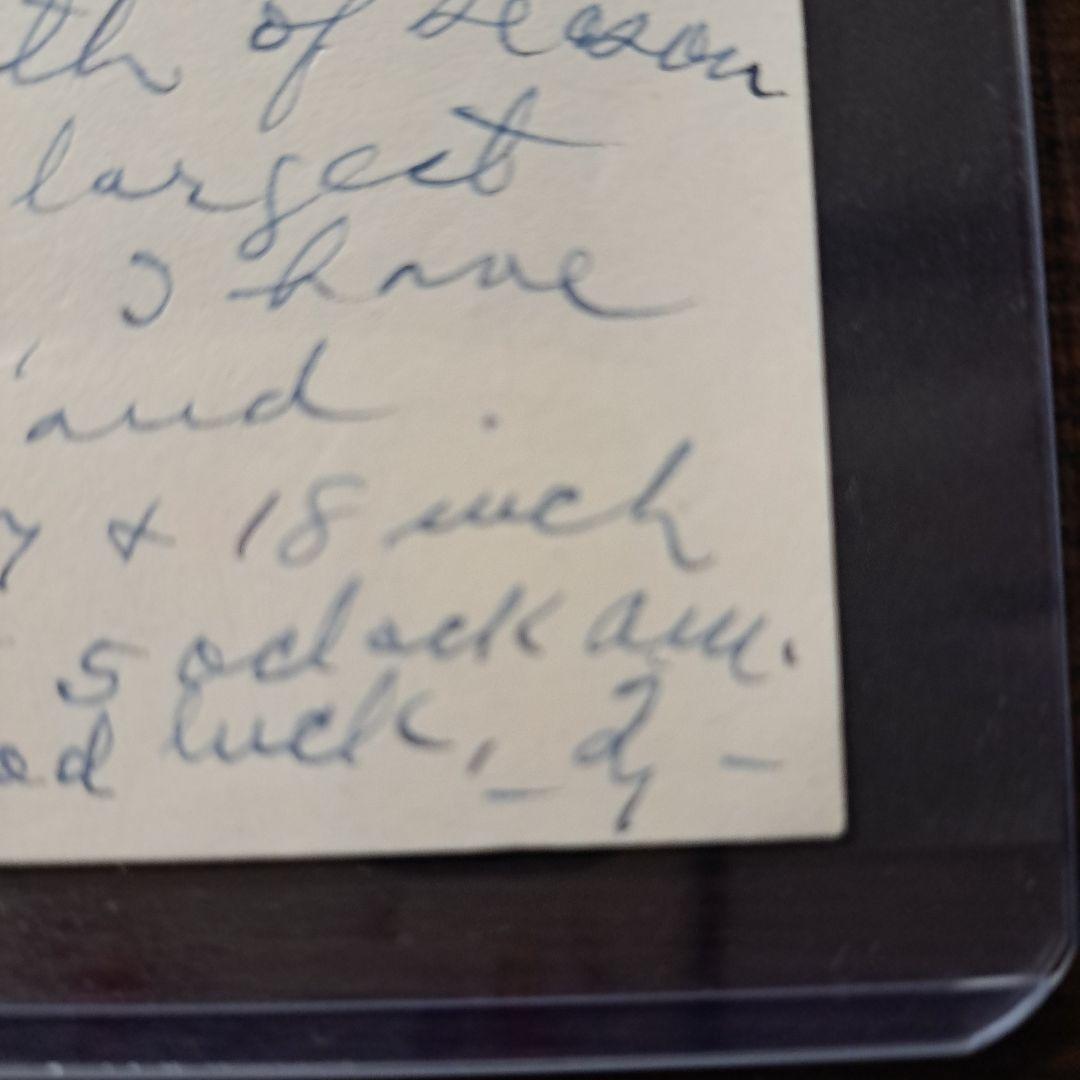 th of season
largest
I have
and.
7 & 18 inch
5 oclock am.
od luck, - -